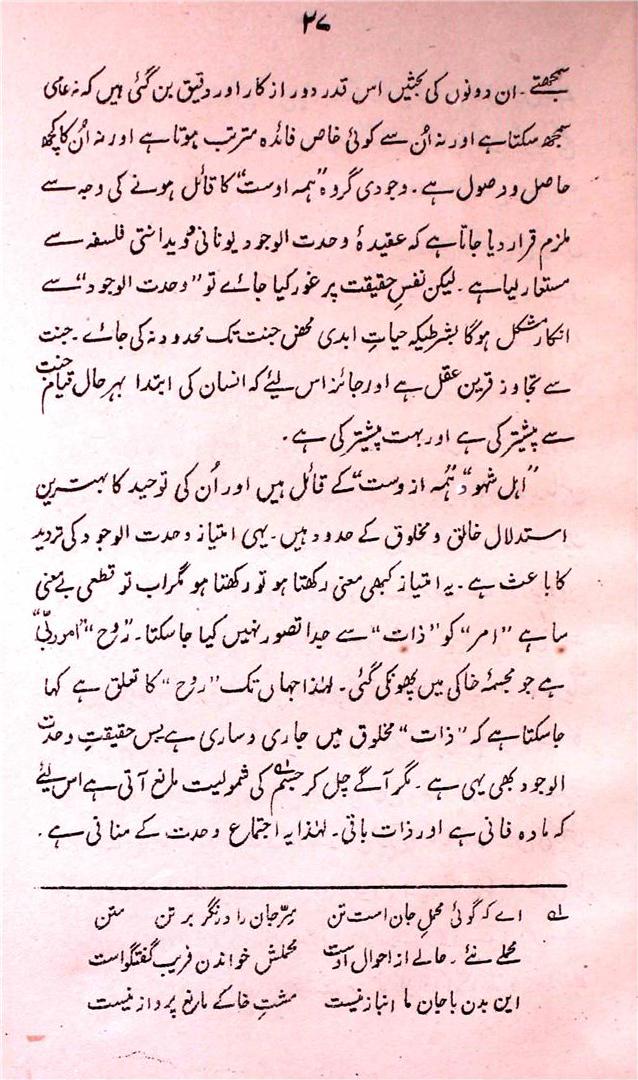 ۲۷
سمجھتے ۔ ان دونوں کی بحثیں اس قدر دور از کار اور دقیق بن گئی ہیں کہ نہ عامی
سمجھ سکتا ہے اور نہ اُن سے کوئی خاص فائدہ مترتب ہوتا ہے اور نہ اُن کا کچھ
حاصل و رصول ہے ۔ وجودی گروہ "ہمہ اوست" کا قائل ہونے کی وجہ سے
ملزم قرار دیا جاتا ہے کہ عقیدۂ وحدت الوجود یونانی و ویدانتی فلسفہ سے
مستعار لیا ہے ۔ لیکن نفسِ حقیقت پر غور کیا جائے تو "وحدت الوجود" سے
انکار مشکل ہوگا بشرطیکہ حیاتِ ابدی محض جنت تک محدود نہ کی جائے ۔ جنت
سے تجاوز قرین عقل ہے اور جائز اس لئیے کہ انسان کی ابتدا بہرحال قیام جنت
سے پیشتر کی ہے اور بہت پیشتر کی ہے ۔
"اہل شہود" "ہمہ از وست" کے قائل ہیں اور اُن کی توحید کا بہترین
استدلال خالق و مخلوق کے حدود ہیں ۔ یہی امتیاز وحدت الوجود کی تردید
کا باعث ہے ۔ یہ امتیاز کبھی معنی رکھتا ہو تو رکھتا ہو مگر اب تو قطعی بے معنی
سا ہے "امر" کو "ذات" سے جدا تصور نہیں کیا جا سکتا ۔ "روح" "امور ربّی"
ہے جو مجسمۂ خاکی میں پھونکی گئی ۔ لہٰذا جہاں تک "روح" کا تعلق ہے کہا
جا سکتا ہے کہ "ذات" مخلوق میں جاری و ساری ہے پس حقیقتِ وحدت
الوجود بھی یہی ہے ۔ مگر آگے چل کر جسم کی شمولیت مانع آتی ہے اس لئیے
کہ مادہ فانی ہے اور ذات باقی ۔ لہٰذا یہ اجتماع وحدت کے منافی ہے ۔
؎۱ اے کہ گوئی محملِ جان است تن سرِّ جان را در نگر بر تن متن
محملے نئے ۔ حالے از احوال اوست محملش خواندن فریب گفتگواست
این بدن با جان ما انباز نیست مشتِ خاکے مانع پرداز نیست